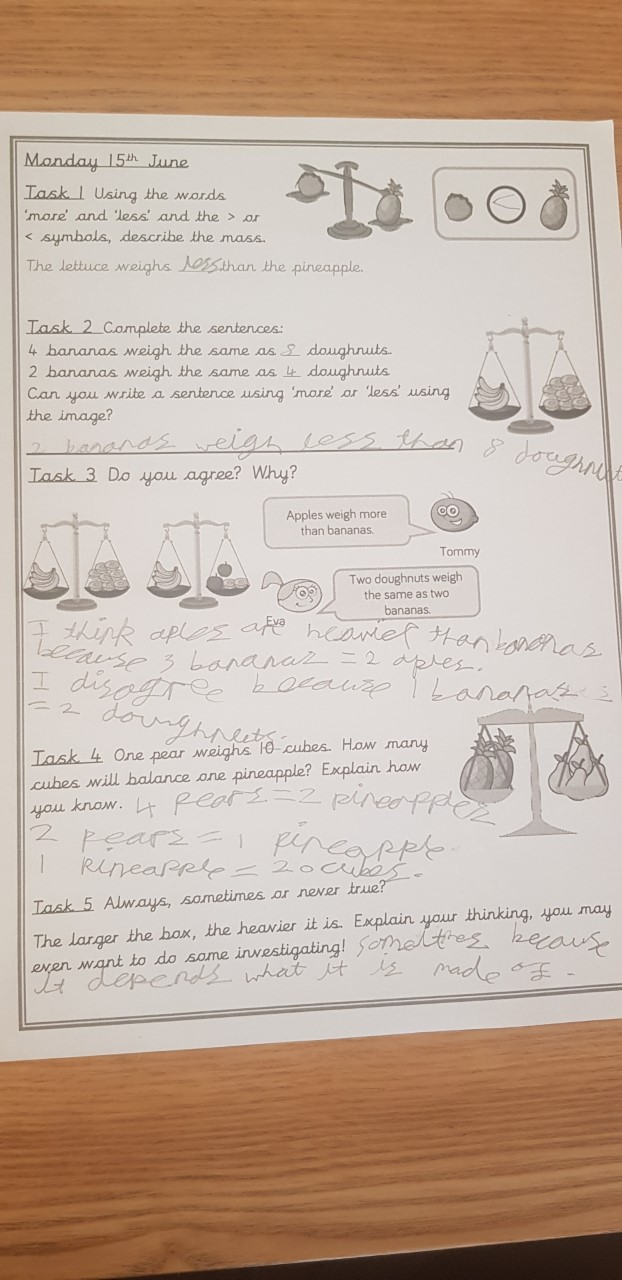 Monday 15th June
Task 1 Using the words
'more' and 'less' and the > or
< symbols, describe the mass.
<
The lettuce weighs less than the pineapple.
Task 2 Complete the sentences:
4 bananas weigh the same as 8 doughnuts.
2 bananas weigh the same as 4 doughnuts
Can you write a sentence using 'more' or 'less' using
the image?
2 bananas weigh less than 8 dougnnut
Task 3 Do you agree? Why?
Apples weigh more
than bananas.
Tommy
Two doughnuts weigh
the same as two
bananas.
Eva
I think aples are heavier than bananas
because 3 bananas = 2 aples.
I disagree because 1 bananas is
= 2 doughnuts.
Task 4 One pear weighs 10 cubes. How many
cubes will balance one pineapple? Explain how
you know. 4 pears = 2 pineapples
2 pears = 1 pineapple.
1 pineapple = 20 cubes.
Task 5 Always, sometimes or never true?
The larger the box, the heavier it is. Explain your thinking, you may
even want to do some investigating! Sometimes because
it depends what it is made of.